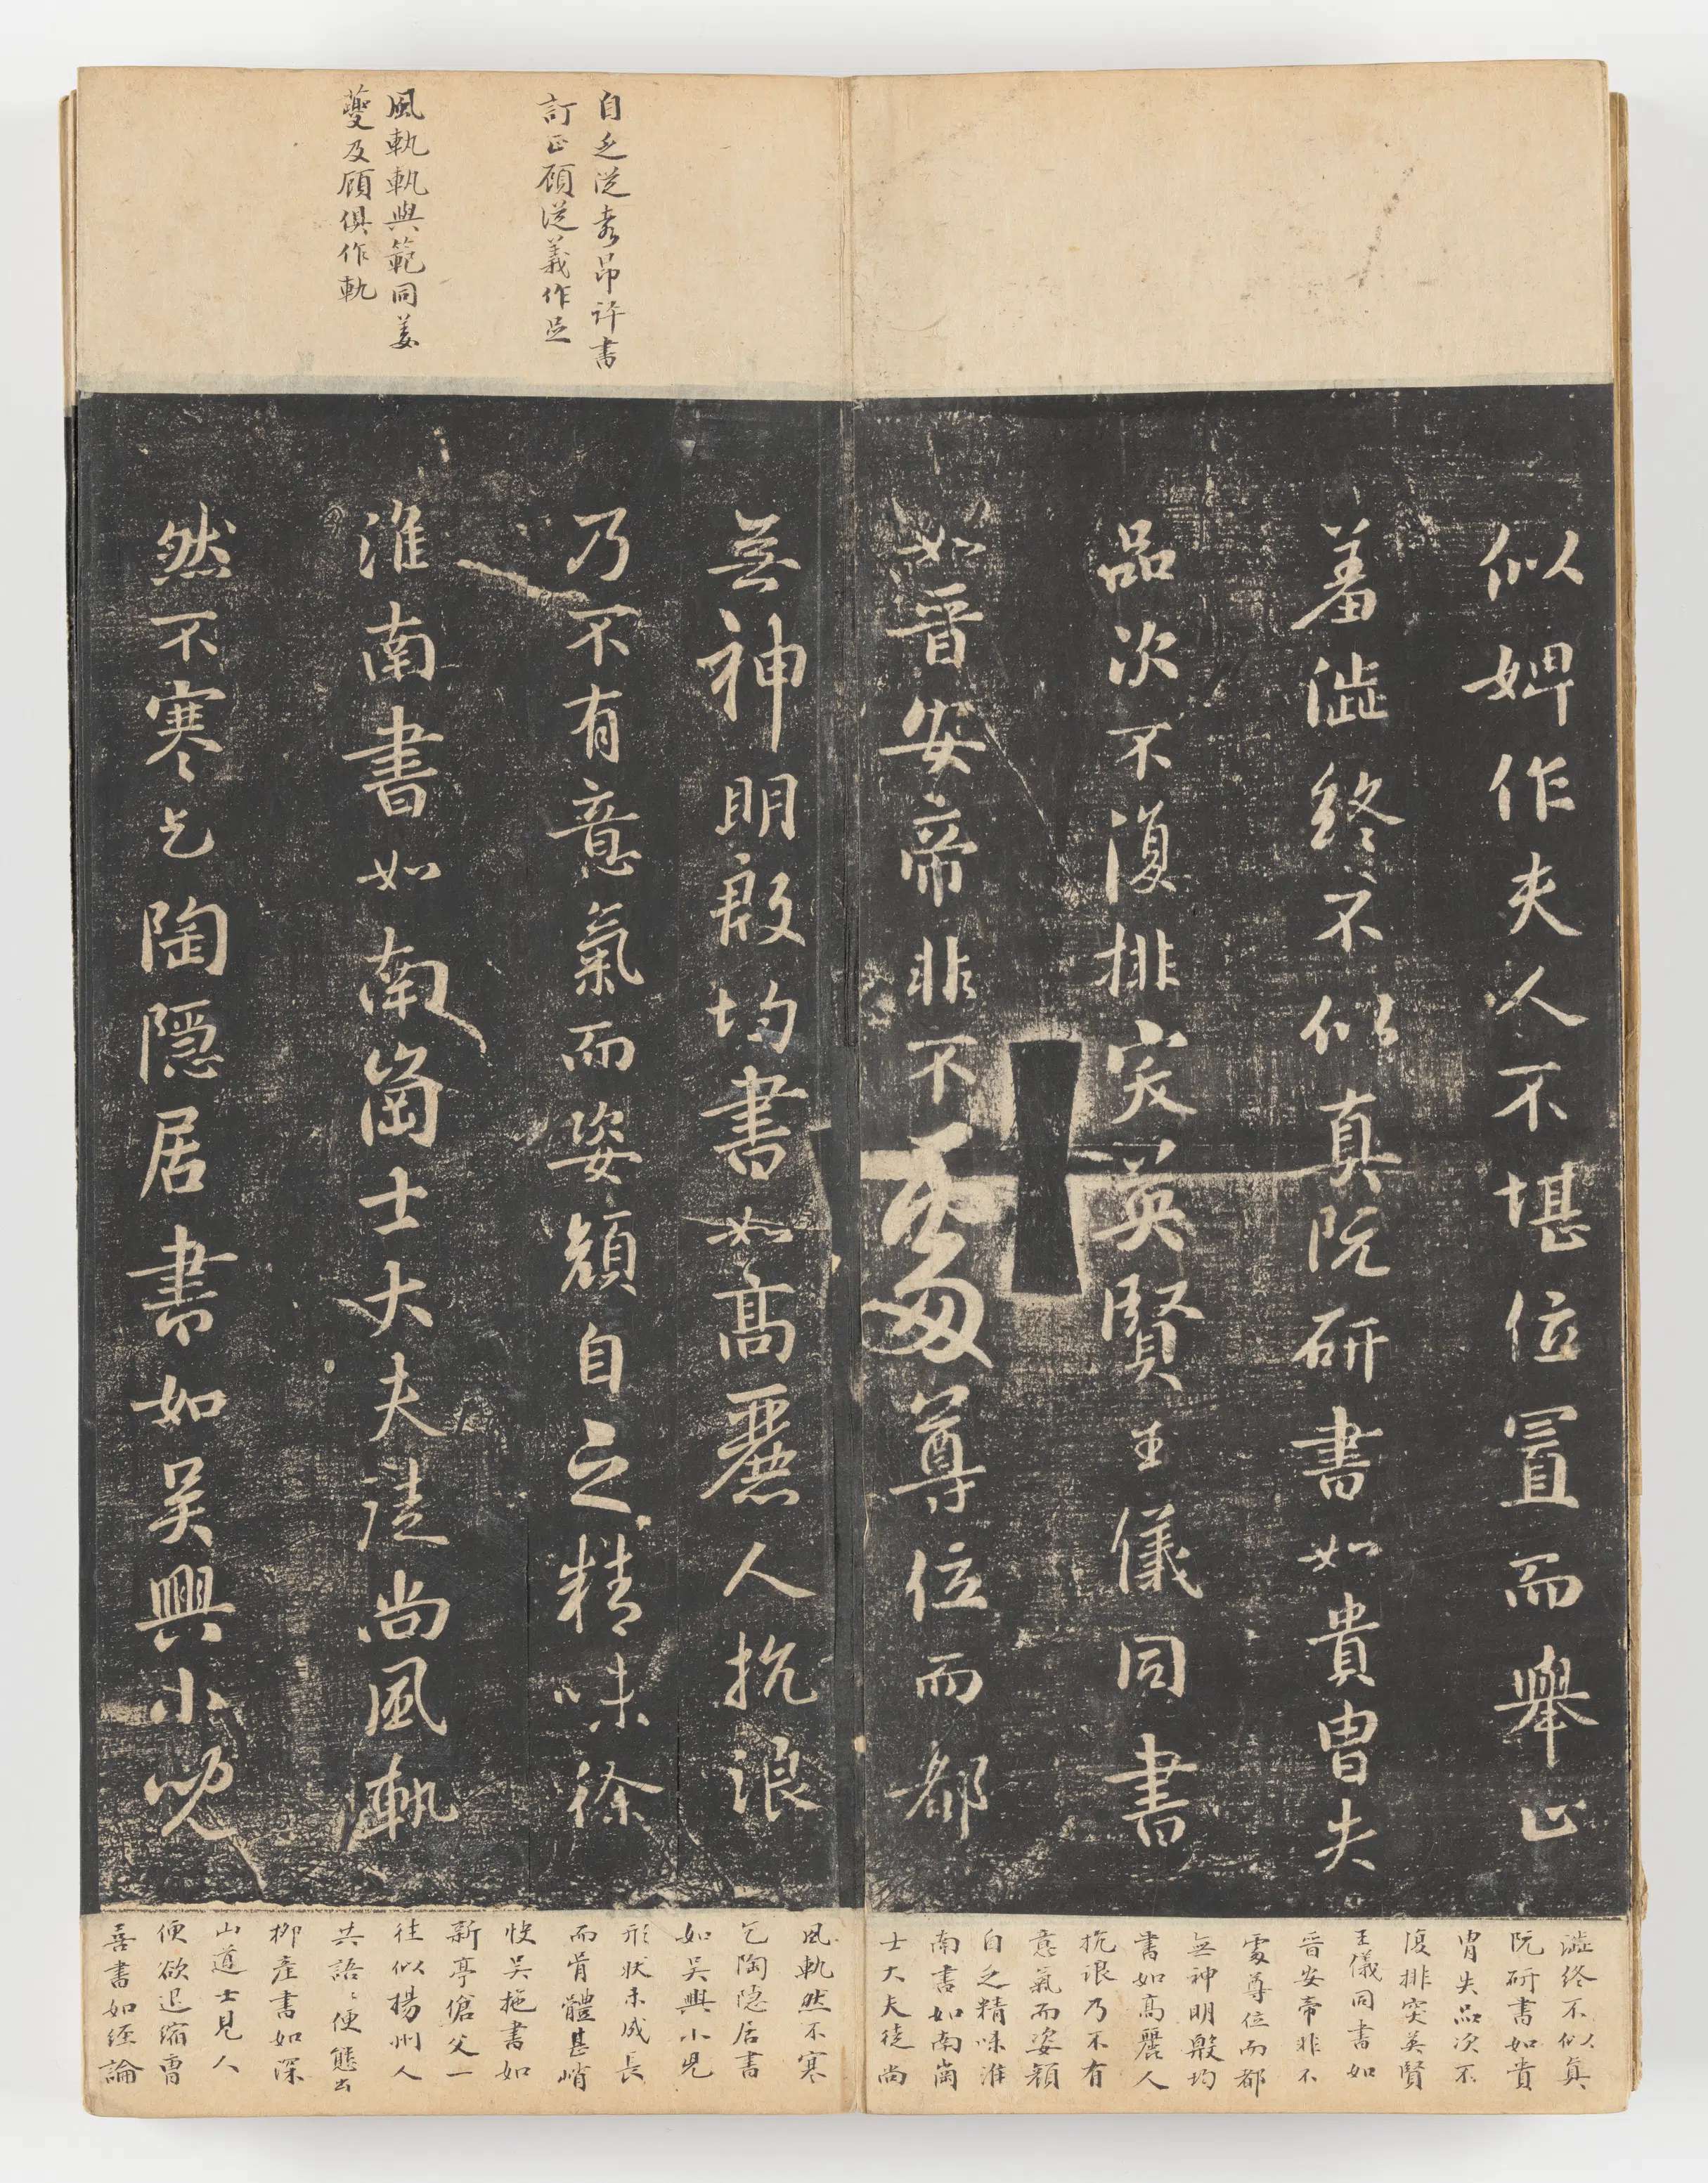 自乏從袁昂評書
訂正顧從義作足
風軓軓與範同姜
夔及顧俱作軌
似婢作夫人不堪位置而舉止
羞澁終不似真阮研書如貴胄失
品次不復排突英賢王儀同書
如晉安帝非不處尊位而都
無神明殷均書如高麗人抗浪
乃不有意氣而姿顏自乏精味徐
淮南書如南崗士大夫徒尚風軓
然不寒乞陶隱居書如吳興小兒
澁終不似真
阮研書如貴
胄失品次不
復排突英賢
王儀同書如
晉安帝非不
處尊位而都
無神明殷均
書如高麗人
抗浪乃不有
意氣而姿顏
自乏精味淮
南書如南崗
士大夫徒尚
風軓然不寒
乞陶隱居書
如吳興小兒
形狀未成長
而骨體甚峭
快吳施書如
新亭傖父一
往似揚州人
共語〻便態出
柳產書如深
山道士見人
便欲退縮曹
喜書如經論